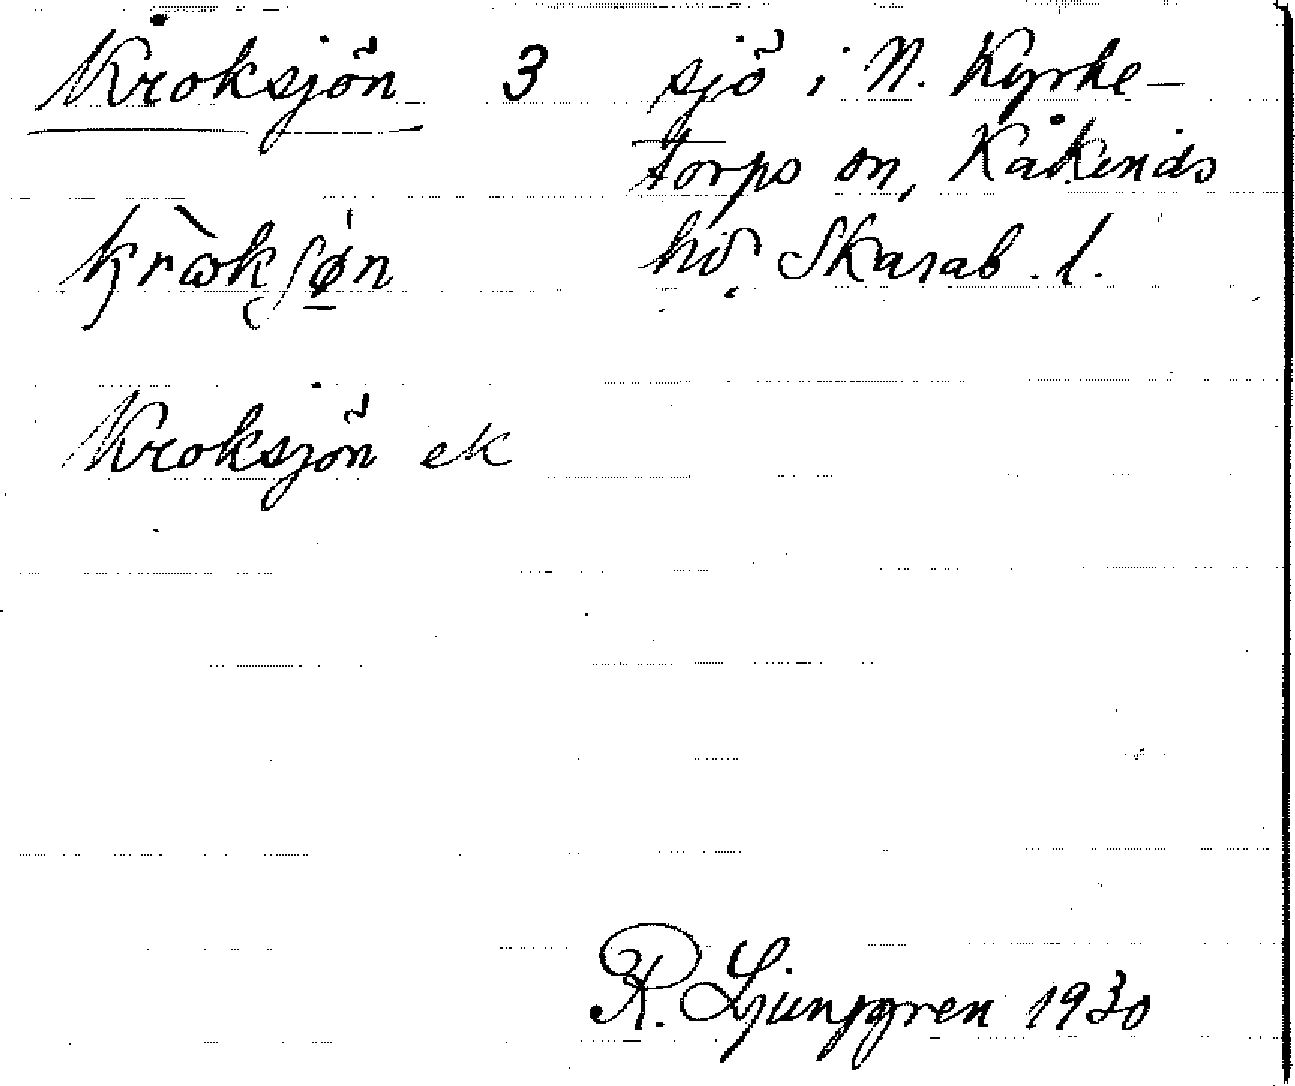 Kroksjön 3 sjö i N. Kyrke-
torps sn, Kåkinds
hd Skarab. l.
Kroksjön ek
R. Ljunggren 1930